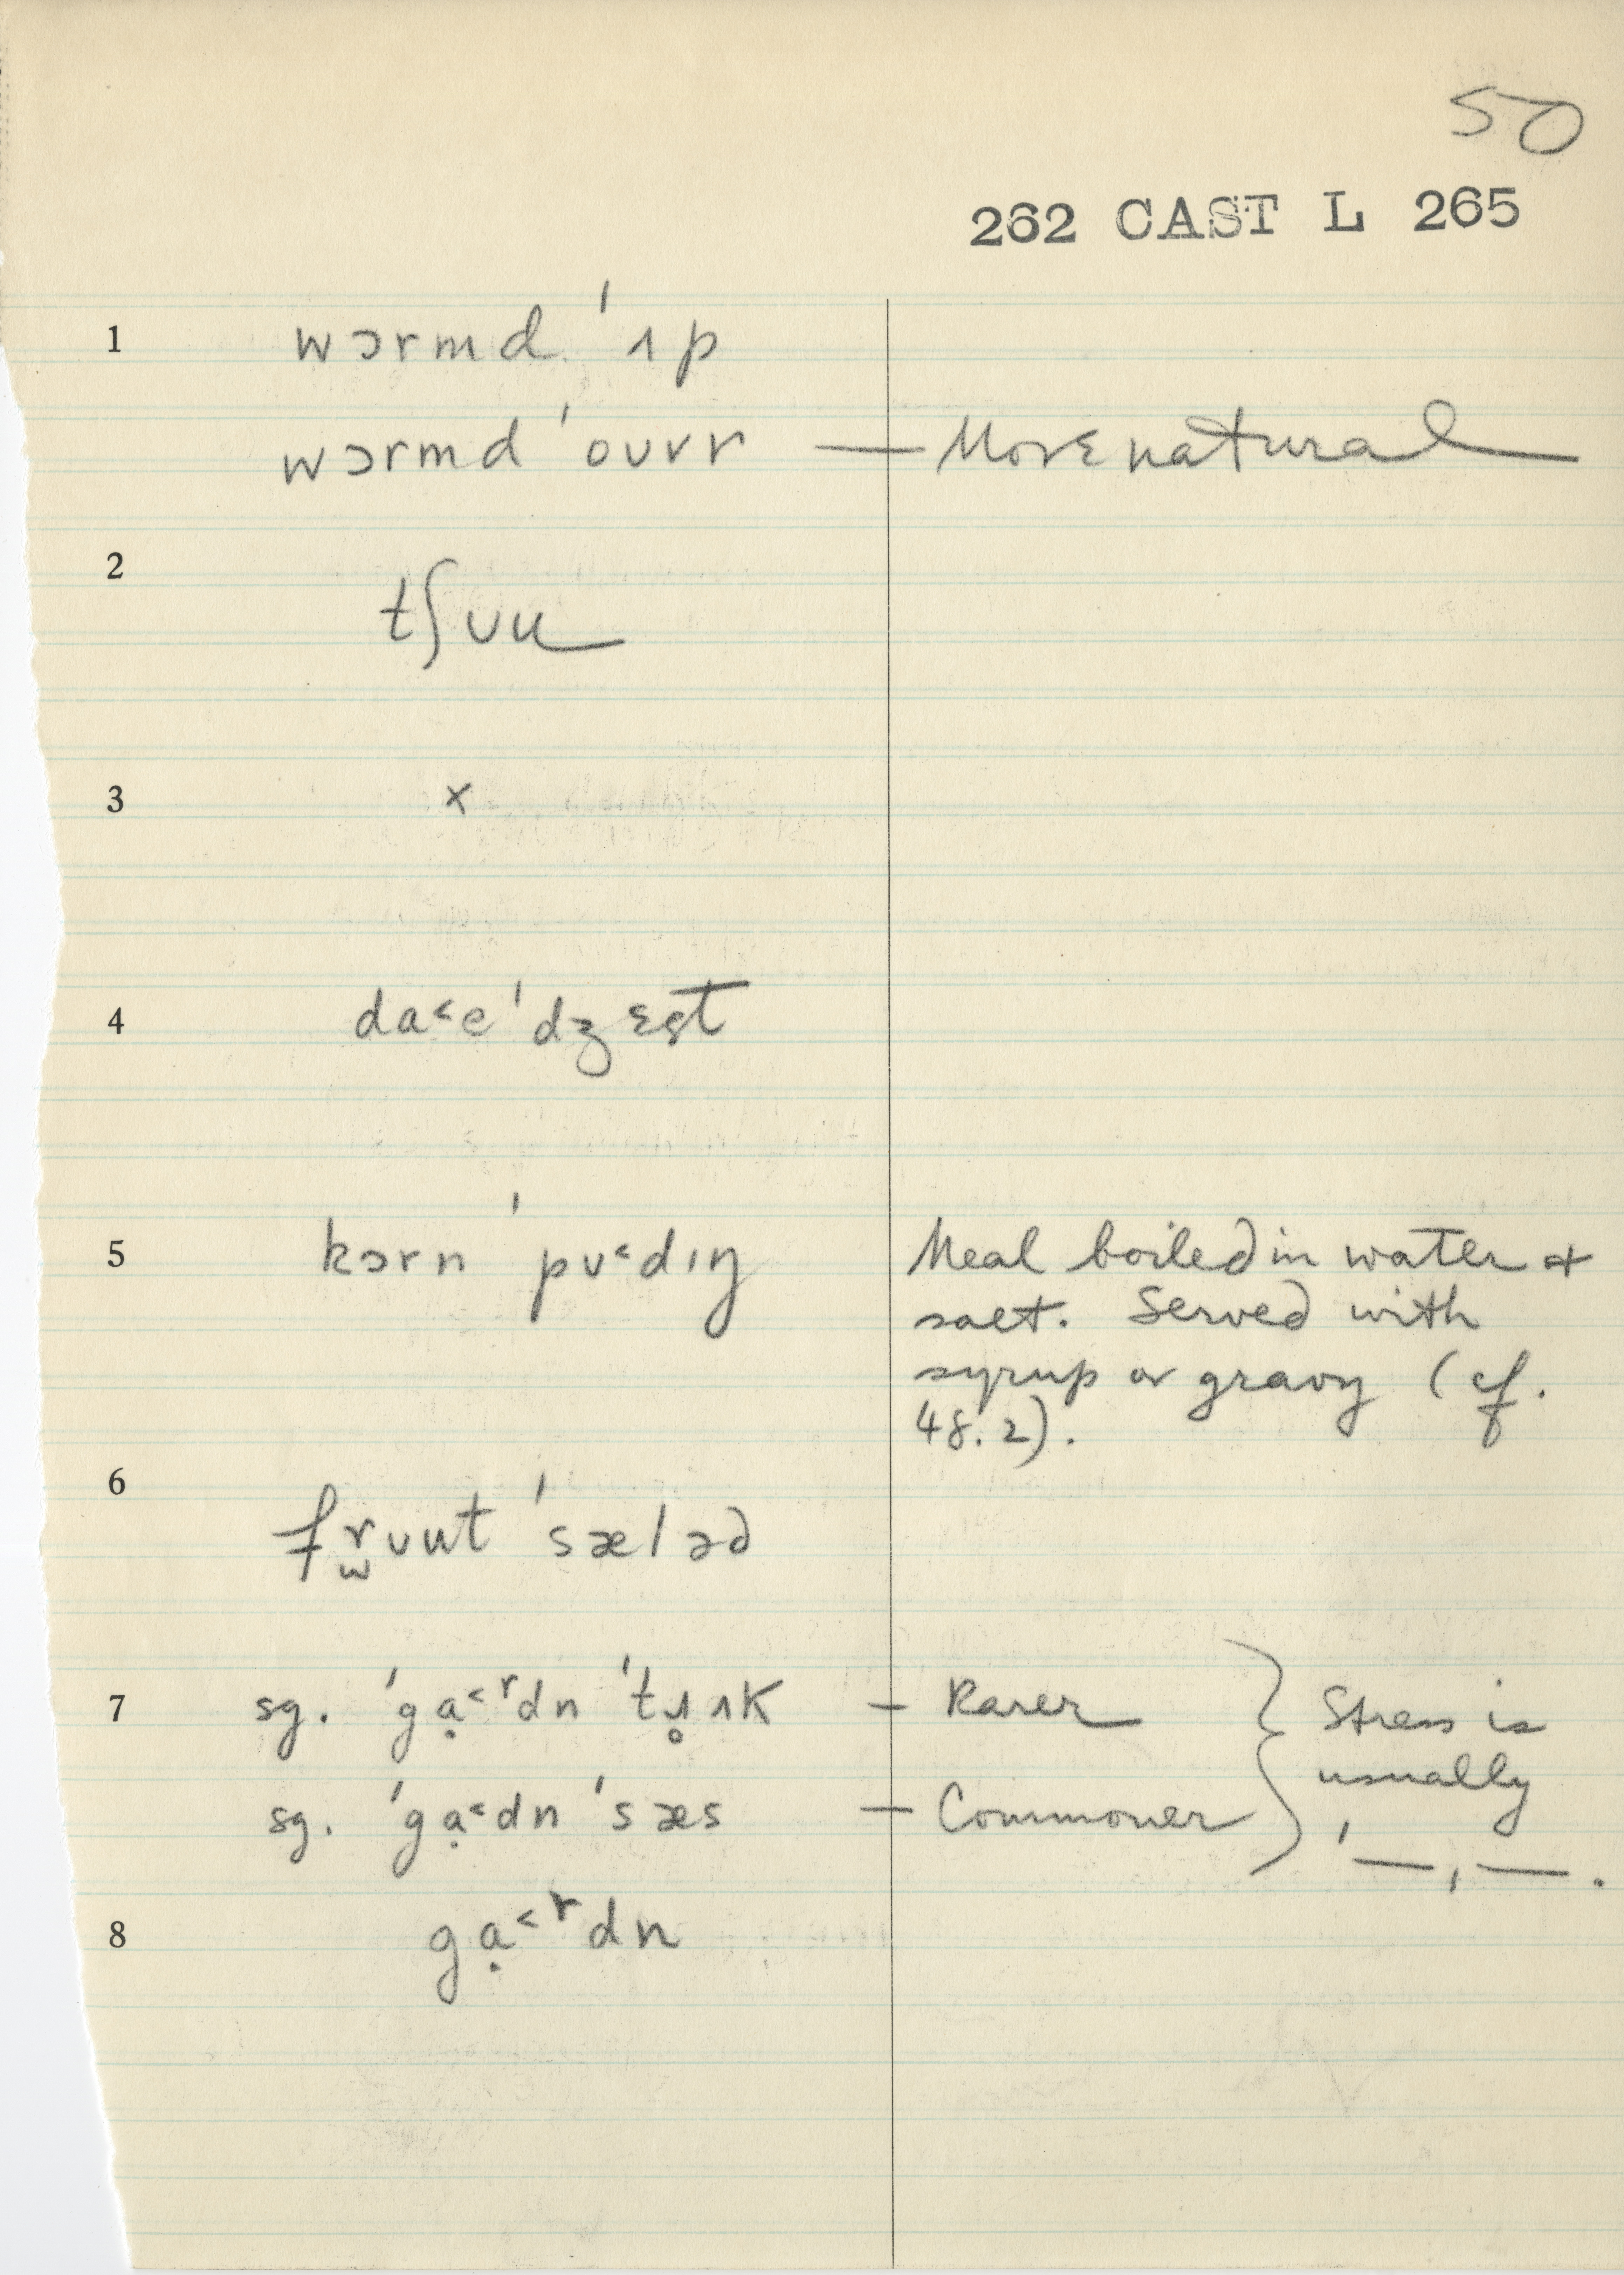 50
262 CAST L 265
1 wɔrmd ˈʌp
wɔrmd ˈoʊvr — More natural
2 tʃʊu
3 x
4 da˂e ˈdʒɛst
5 kɔrn ˈpʊ˂dɪŋ Meal boiled in water +
salt. Served with
syrup or gravy (cf.
48.2).
6 fr̫ʊut ˈsæləd
7 sg. ˈgạ˂ʳdn — Rarer } Stress is
usually
sg. ˈgạ˂dn ˈsæs — Commoner ˈ—ˌ—.
8 gạ˂ʳdn